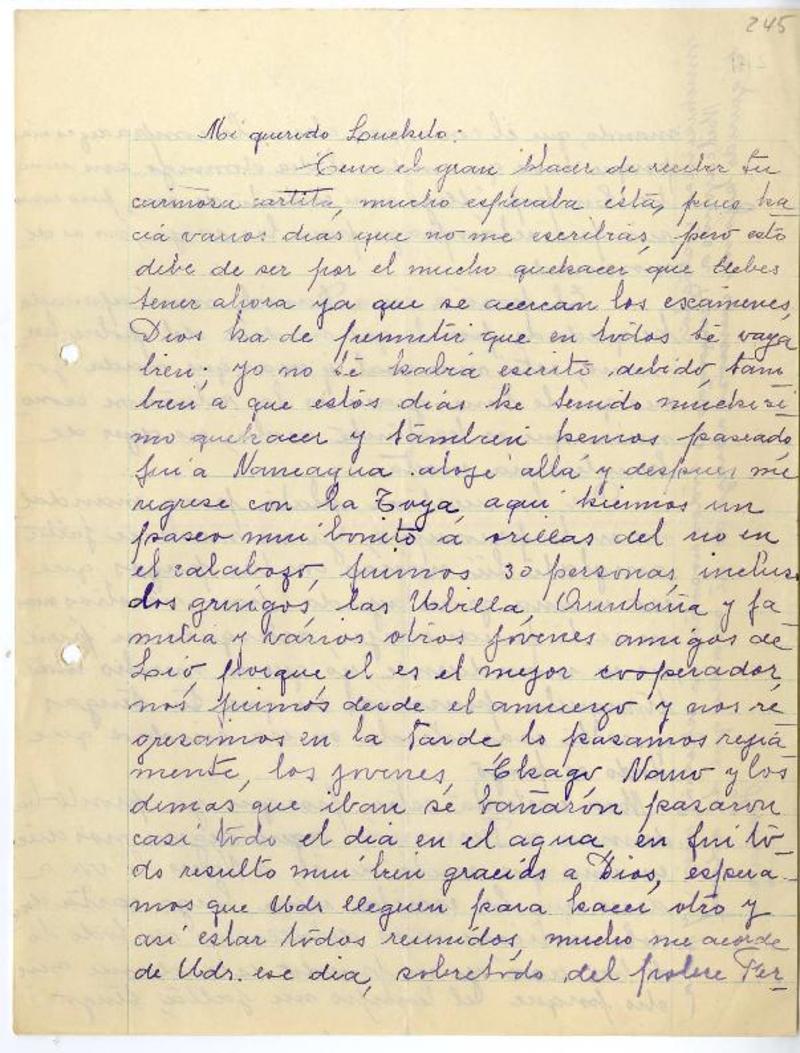 245
Mi querido Luchito:
Tuve el gran placer de recibir tu
cariñosa cartita, mucho esperaba ésta, pues ha-
cia varios dias que no me escribias, pero esto
debe de ser por el mucho quehacer que debes
tener ahora ya que se acercan los exámenes,
Dios ha de permitir que en todos te vaya
bien; yo no te habia escrito debido tam
bien a que estos dias he tenido muchisi-
mo quehacer y tambien hemos paseado,
fui a Nancagua alojé allá y despues me
regrese con la Toya, aqui hicimos un
paseo mui bonito á orillas del rio en
el calabozo, fuimos 30 personas, inclus.
dos gringos, las Ubilla, Quintana y fa
milia y varios otros jóvenes amigos de
Lió, porque el es el mejor cooperador,
nos fuimos desde el amuerzo y nos re-
gresamos en la tarde, lo pasamos regia-
mente, los jovenes, Chago, Nano y los
demas que iban se bañaron pasaron
casi todo el dia en el agua, en fin to-
do resulto mui bien gracias a Dios, espera-
mos que Uds lleguen para hacer otro y
asi estar todos reunidos, mucho me acorde
de Uds. ese dia, sobretodo del pobre Fer-